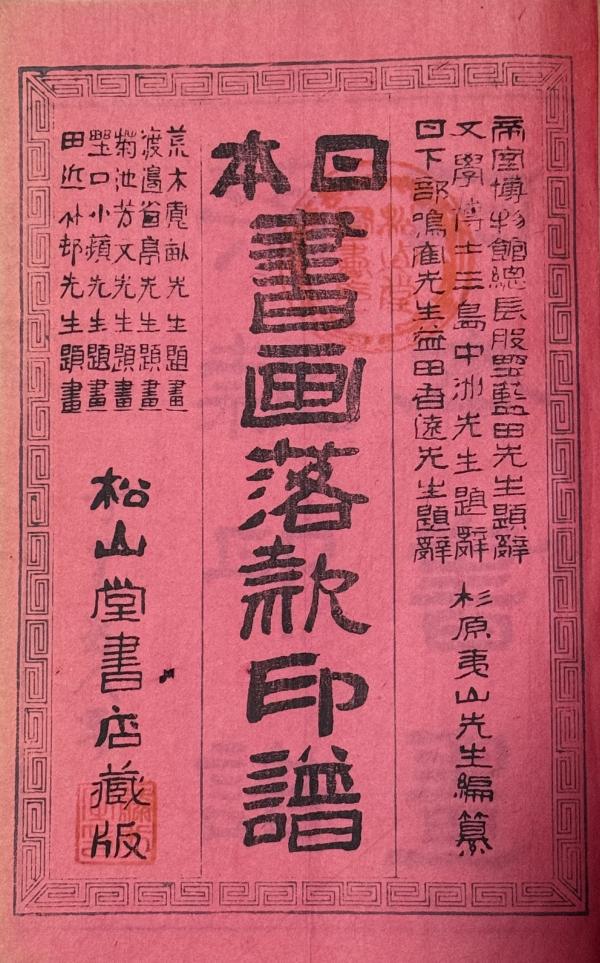 帝室博物館總長股野藍田先生題辭
文學博士三島中洲先生題辭
日下部鳴隺先生益田香遠先生題辭
杉原夷山先生編纂
日本
書画落款印譜
荒木寛畝先生題畫
渡邉省亭先生題畫
菊池芳文先生題畫
野口小蘋先生題畫
田近竹邨先生題畫
松山堂書店藏版